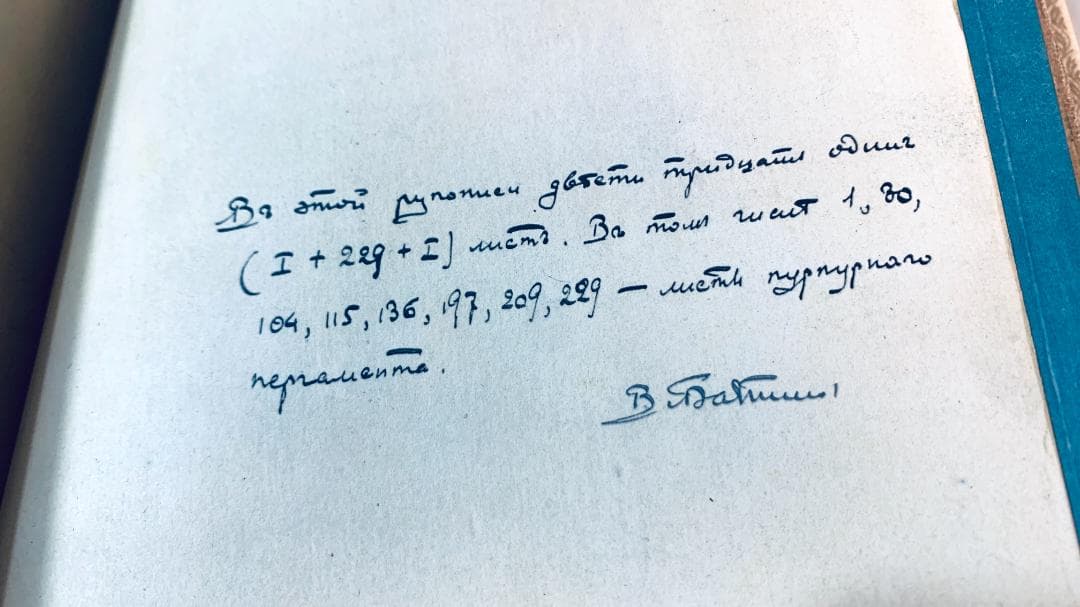 Въ этой рукописи двѣсти тридцать одинъ
(I + 229 + I) листъ. Въ томъ числѣ 1, 30,
104, 115, 136, 197, 209, 229 — листы пурпурнаго
пергамента.
В